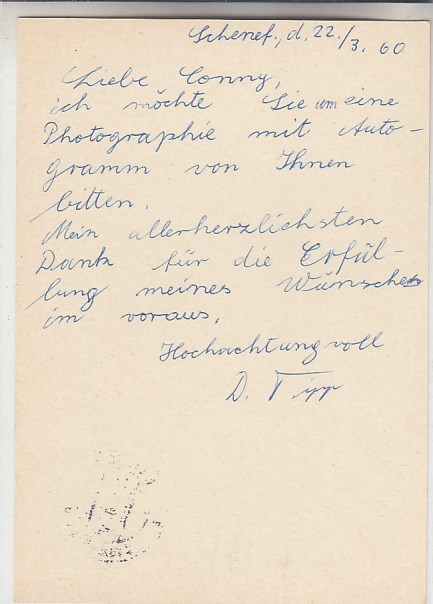 Schenef., d. 22./3. 60
Liebe Conny,
ich möchte Sie um eine
Photographie mit Auto-
gramm von Ihnen
bitten.
Mein allerherzlichsten
Dank für die Erfül-
lung meines Wunsches
im voraus.
Hochachtungvoll
D. Tipp